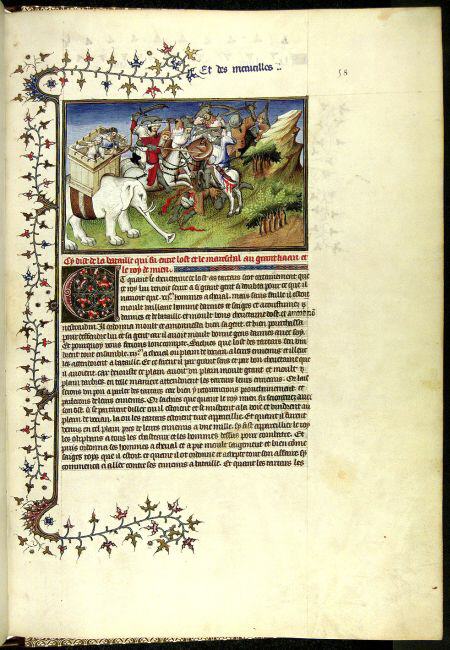 Et des merueilles
58
Cy dist de la bataille qui fu entre lost et le mareschal au grant kaan et
le roy de mien
Et quant le cheuetaine de lost as tartars sont certainement que
cil roy lui venoit seure a si grant gent si doubta pour ce que il
nauoit que .xij.m hommes a cheual. mais sans faille il estoit
moult vaillant homme darmes et saiges et acoustumez
darmes et de bataille et moult bons cheuetaine dost.
Il ordonna moult et amonnesta bien sa gent. et bien pourchassa
pour deffendre lui et sa gent car il auoit moult bonne gent darmes auec soy.
Et pourquoy vous feroie lonc compte. Sachies que lost des tartars sen vin
drent tout ensamble .xij.m a cheual ou plain de vocian a leurs ennemis et illeuc
les attendoient a bataille. Et ce firent il par grant sens et par bon cheuetaine que
il auoient. car dencoste ce plain auoit vn moult grant et moult
plain darbres. en telle maniere attendirent les tartars leurs ennemis. Or lais
serons vn poi a parler des tartars car bien y retournerons prouchainement. et
parlerons de leurs ennemis. Or sachies que quant le roy mien fu seiournez auec
son ost. si se partirent dilluec ou il estoient et se mistrent a la voie et vindrent au
plain de vocian. la ou les tartars estoient tuit appareillie. Et quant il furent
venus en cel plain pres de leurs ennemis a vne mille. sy fist appareillier le roy
les olyphans a tous les chasteaux et les hommes dessus pour combatre. Et
puis ordonna ses hommes a cheual et a pie moult saigement et bien comme
saiges roys que il estoit. et quant il ot ordonne et atorne tout son affaire sy
commenca a aler contre ses ennemis a bataille. Et quant les tartars les